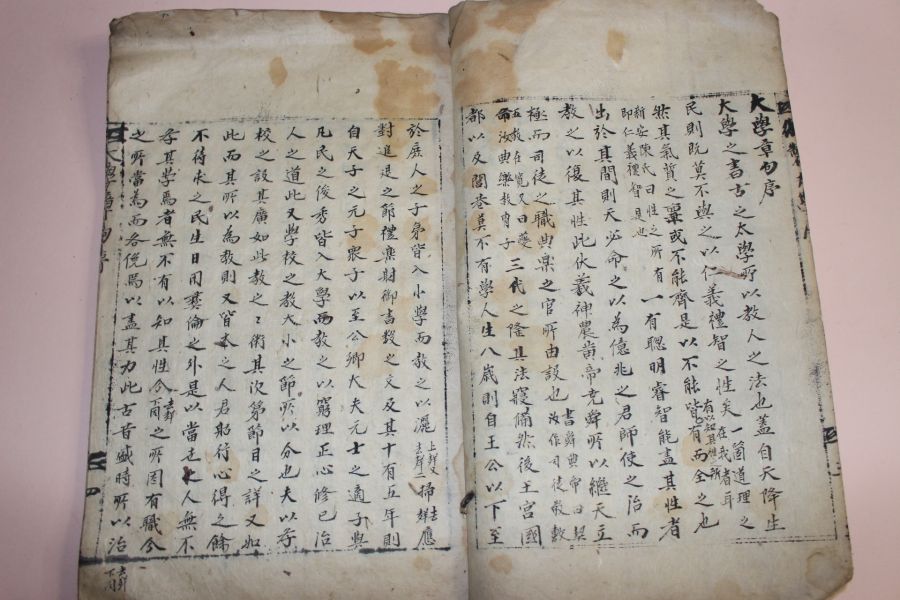 大學章句序
大學之書古之太學所以教人之法也蓋自天降生
民則旣莫不與之以仁義禮智之性矣一箇道理之在我者耳
然其氣質之稟或不能齊是以不能皆有以知其性之所有而全之也
新安陳氏曰性之所有即仁義禮智是也一有聰明睿智能盡其性者
出於其間則天必命之以為億兆之君師使之治而
教之以復其性此伏羲神農黃帝堯舜所以繼天立
極而司徒之職典樂之官所由設也書舜典帝曰契汝作司徒敬敷
五教在寬又曰夔命汝典樂教胄子三代之隆其法寖備然後王宮國
都以及閭巷莫不有學人生八歲則自王公以下至
於庶人之子弟皆入小學而教之以灑上聲又去聲掃去聲應
對進退之節禮樂射御書數之文及其十有五年則
自天子之元子衆子以至公卿大夫元士之適子與
凡民之俊秀皆入大學而教之以窮理正心修己治
人之道此又學校之教大小之節所以分也夫以學
校之設其廣如此教之之術其次第節目之詳又如
此而其所以為教則又皆本之人君躬行心得之餘
不待求之民生日用彝倫之外是以當世之人無不
學其學焉者無不有以知其性分去聲之所固有職分
之所當為而各俛焉以盡其力此古昔盛時所以治
去聲下同
大學章句序